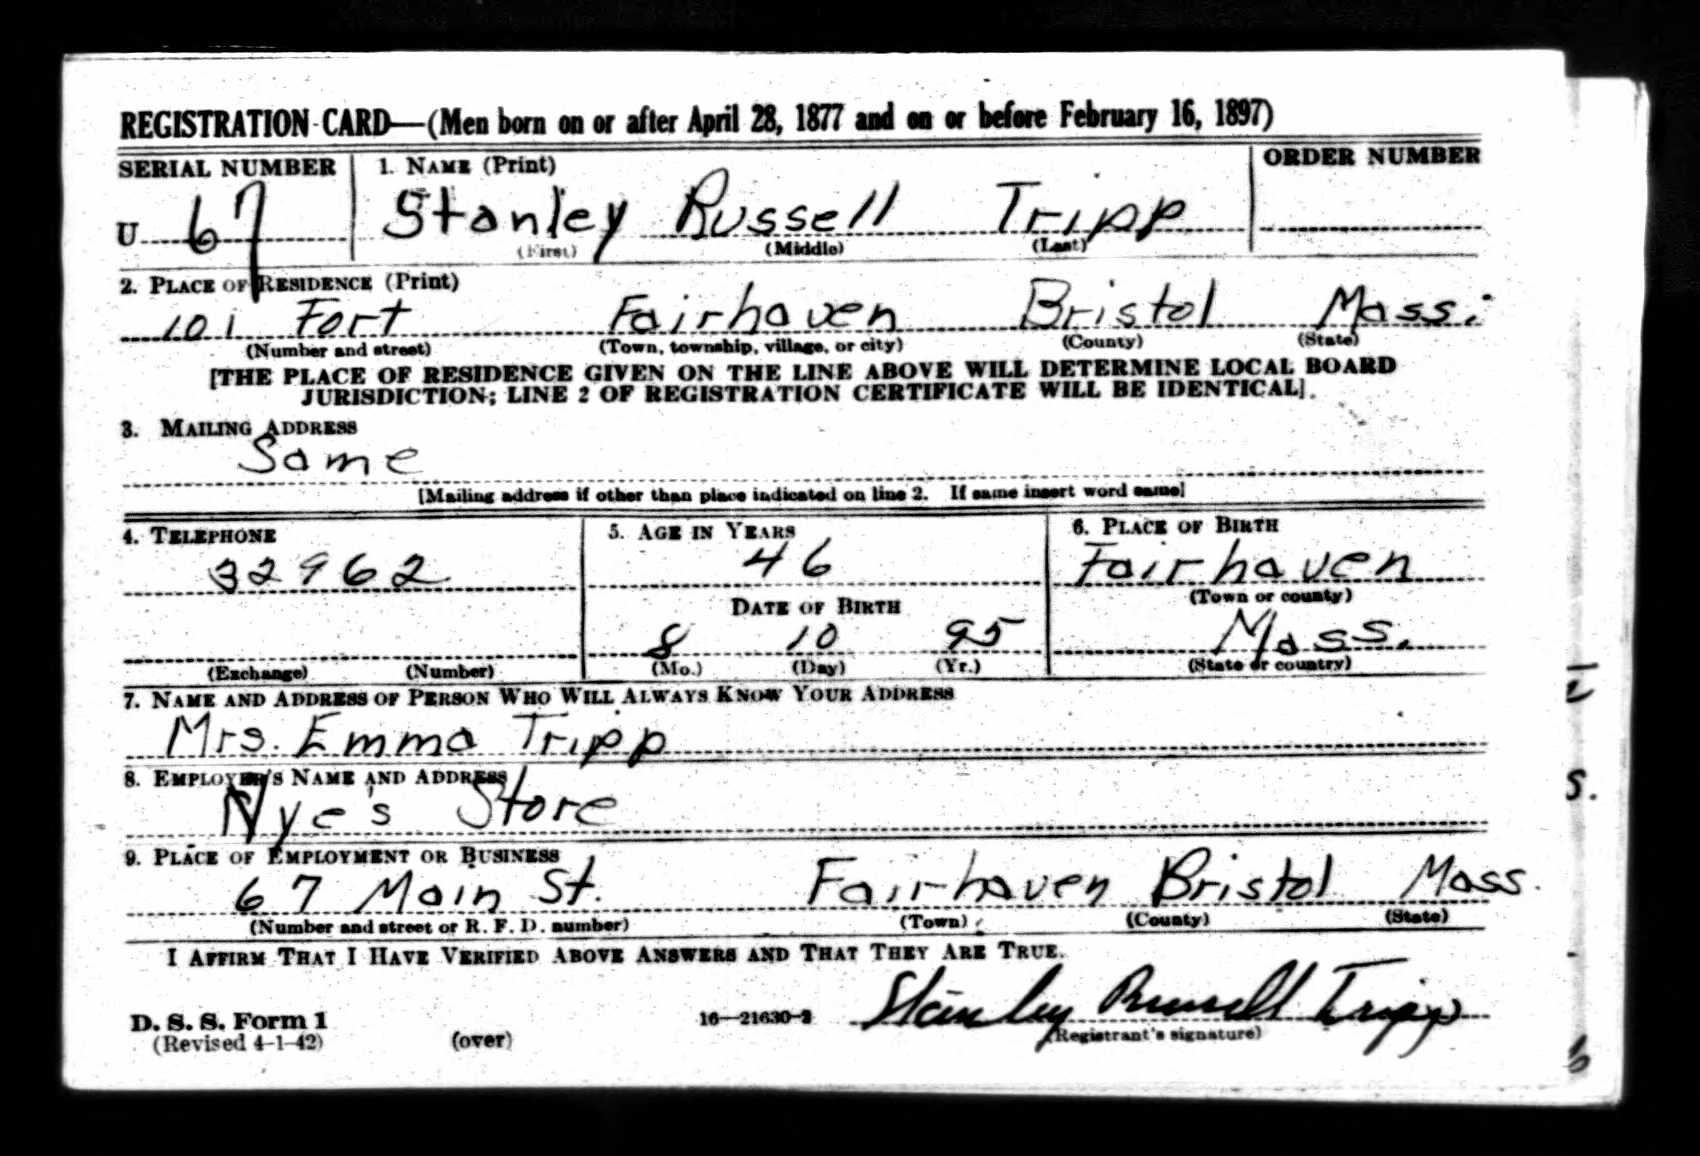 REGISTRATION CARD—(Men born on or after April 28, 1877 and on or before February 16, 1897)
SERIAL NUMBER 1. NAME (Print) ORDER NUMBER
U 67 Stanley Russell Tripp
(First) (Middle) (Last)
2. PLACE OF RESIDENCE (Print)
101 Fort Fairhaven Bristol Mass.
(Number and street) (Town, township, village, or city) (County) (State)
[THE PLACE OF RESIDENCE GIVEN ON THE LINE ABOVE WILL DETERMINE LOCAL BOARD
JURISDICTION; LINE 2 OF REGISTRATION CERTIFICATE WILL BE IDENTICAL].
3. MAILING ADDRESS
Same
[Mailing address if other than place indicated on line 2. If same insert word same]
4. TELEPHONE 5. AGE IN YEARS 6. PLACE OF BIRTH
32962 46 Fairhaven
(Town or county)
DATE OF BIRTH
8 10 95 Mass.
(Exchange) (Number) (Mo.) (Day) (Yr.) (State or country)
7. NAME AND ADDRESS OF PERSON WHO WILL ALWAYS KNOW YOUR ADDRESS
Mrs. Emma Tripp
8. EMPLOYER'S NAME AND ADDRESS
Nye's Store
9. PLACE OF EMPLOYMENT OR BUSINESS
67 Main St. Fairhaven Bristol Mass.
(Number and street or R. F. D. number) (Town) (County) (State)
I AFFIRM THAT I HAVE VERIFIED ABOVE ANSWERS AND THAT THEY ARE TRUE.
Stanley Russell Tripp
D. S. S. Form 1 16—21630-2 (Registrant's signature)
(Revised 4-1-42) (over)